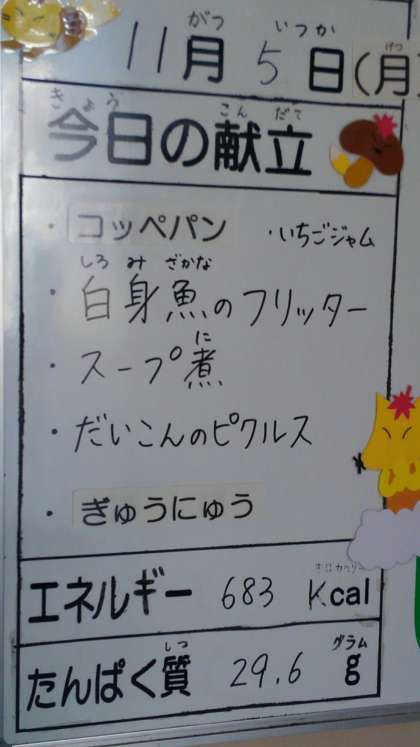 がつ いつか げつ
11月5日(月)
きょう こん だて
今日の献立
・コッペパン ・いちごジャム
しろ み ざかな
・白身魚のフリッター
に
・スープ煮
・だいこんのピクルス
・ぎゅうにゅう
エネルギー 683 Kcal
しつ グラム
たんぱく質 29.6 g